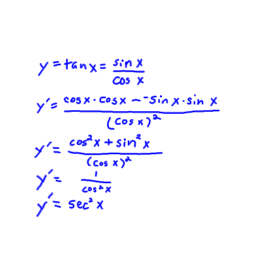 y = tan x = sin x / cos x
y' = cos x · cos x - -sin x · sin x / (cos x)²
y' = cos² x + sin² x / (cos x)²
y' = 1 / cos² x
y' = sec² x